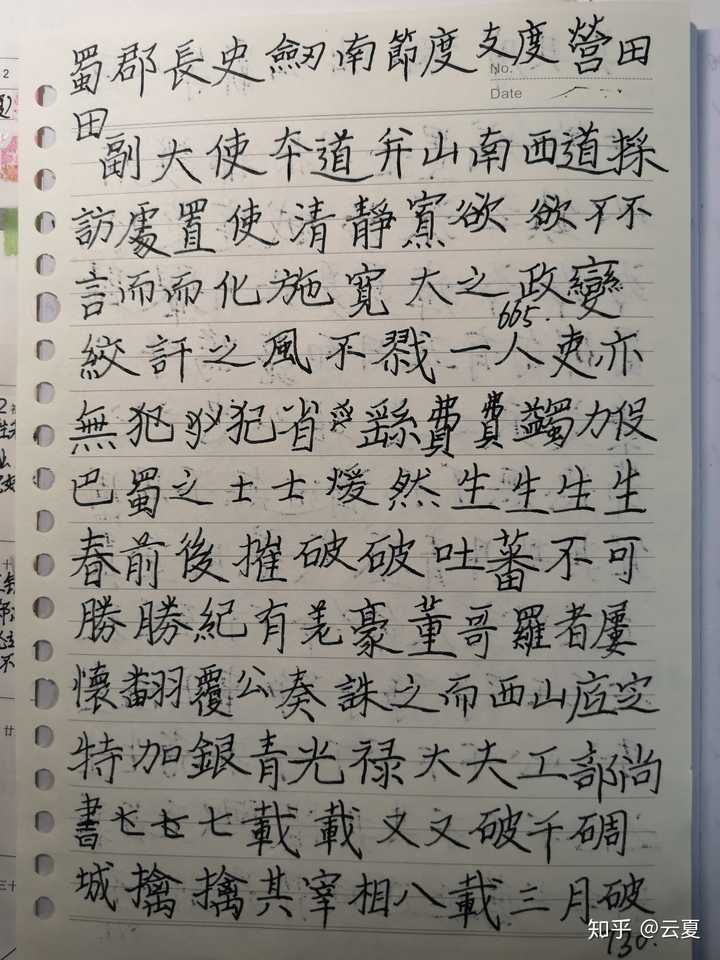 No.
Date
2
蜀郡長史劒南節度支度營田
田
副大使本道并山南西道採
訪處置使清靜寡欲欲不不
言而而化施寬大之政變
665.
絞訐之風不戮一人吏亦
無犯犯省繇費費蠲力役
巴蜀之士士煖然生生生生
春前後摧破破吐蕃不可
勝勝紀有羌豪董哥羅者屢
懷翻覆公奏誅之而西山底定
特加銀青光禄大夫工部尚
書七七七載載又又破千碉
城擒擒其宰相八載三月破
知乎 @云夏
730.